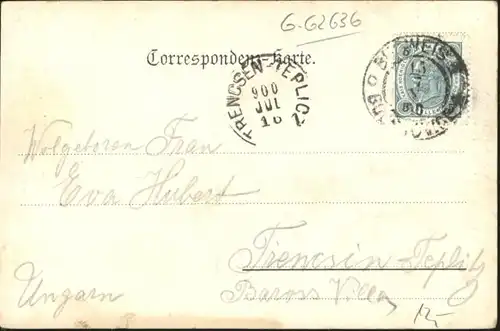 G-G2636
Correspondenz-Karte.
TRENCSEN-TEPLICZ
900
JUL
16
BUDWEIS
Wolgeboren Frau
Eva Hubert
Trencsin-Teplitz
Ungarn
Baross Villa
12-